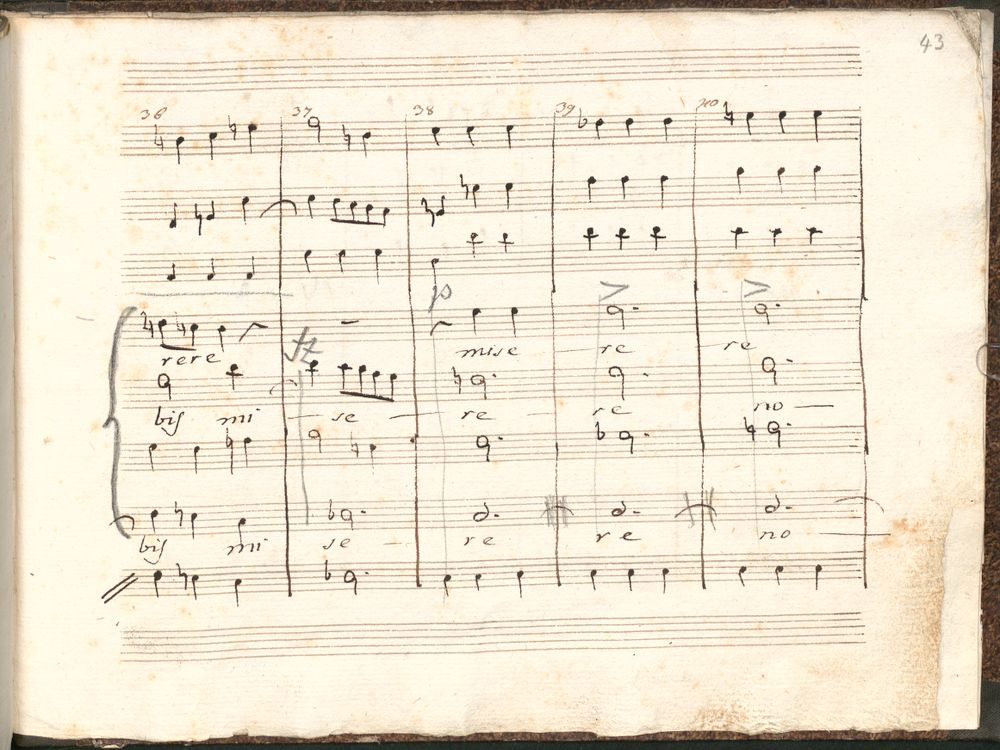 43
36 37 38 39 40
p
rere mise — re — re
fz
bis mi — se — re — re no —
bis mi se — re re no —